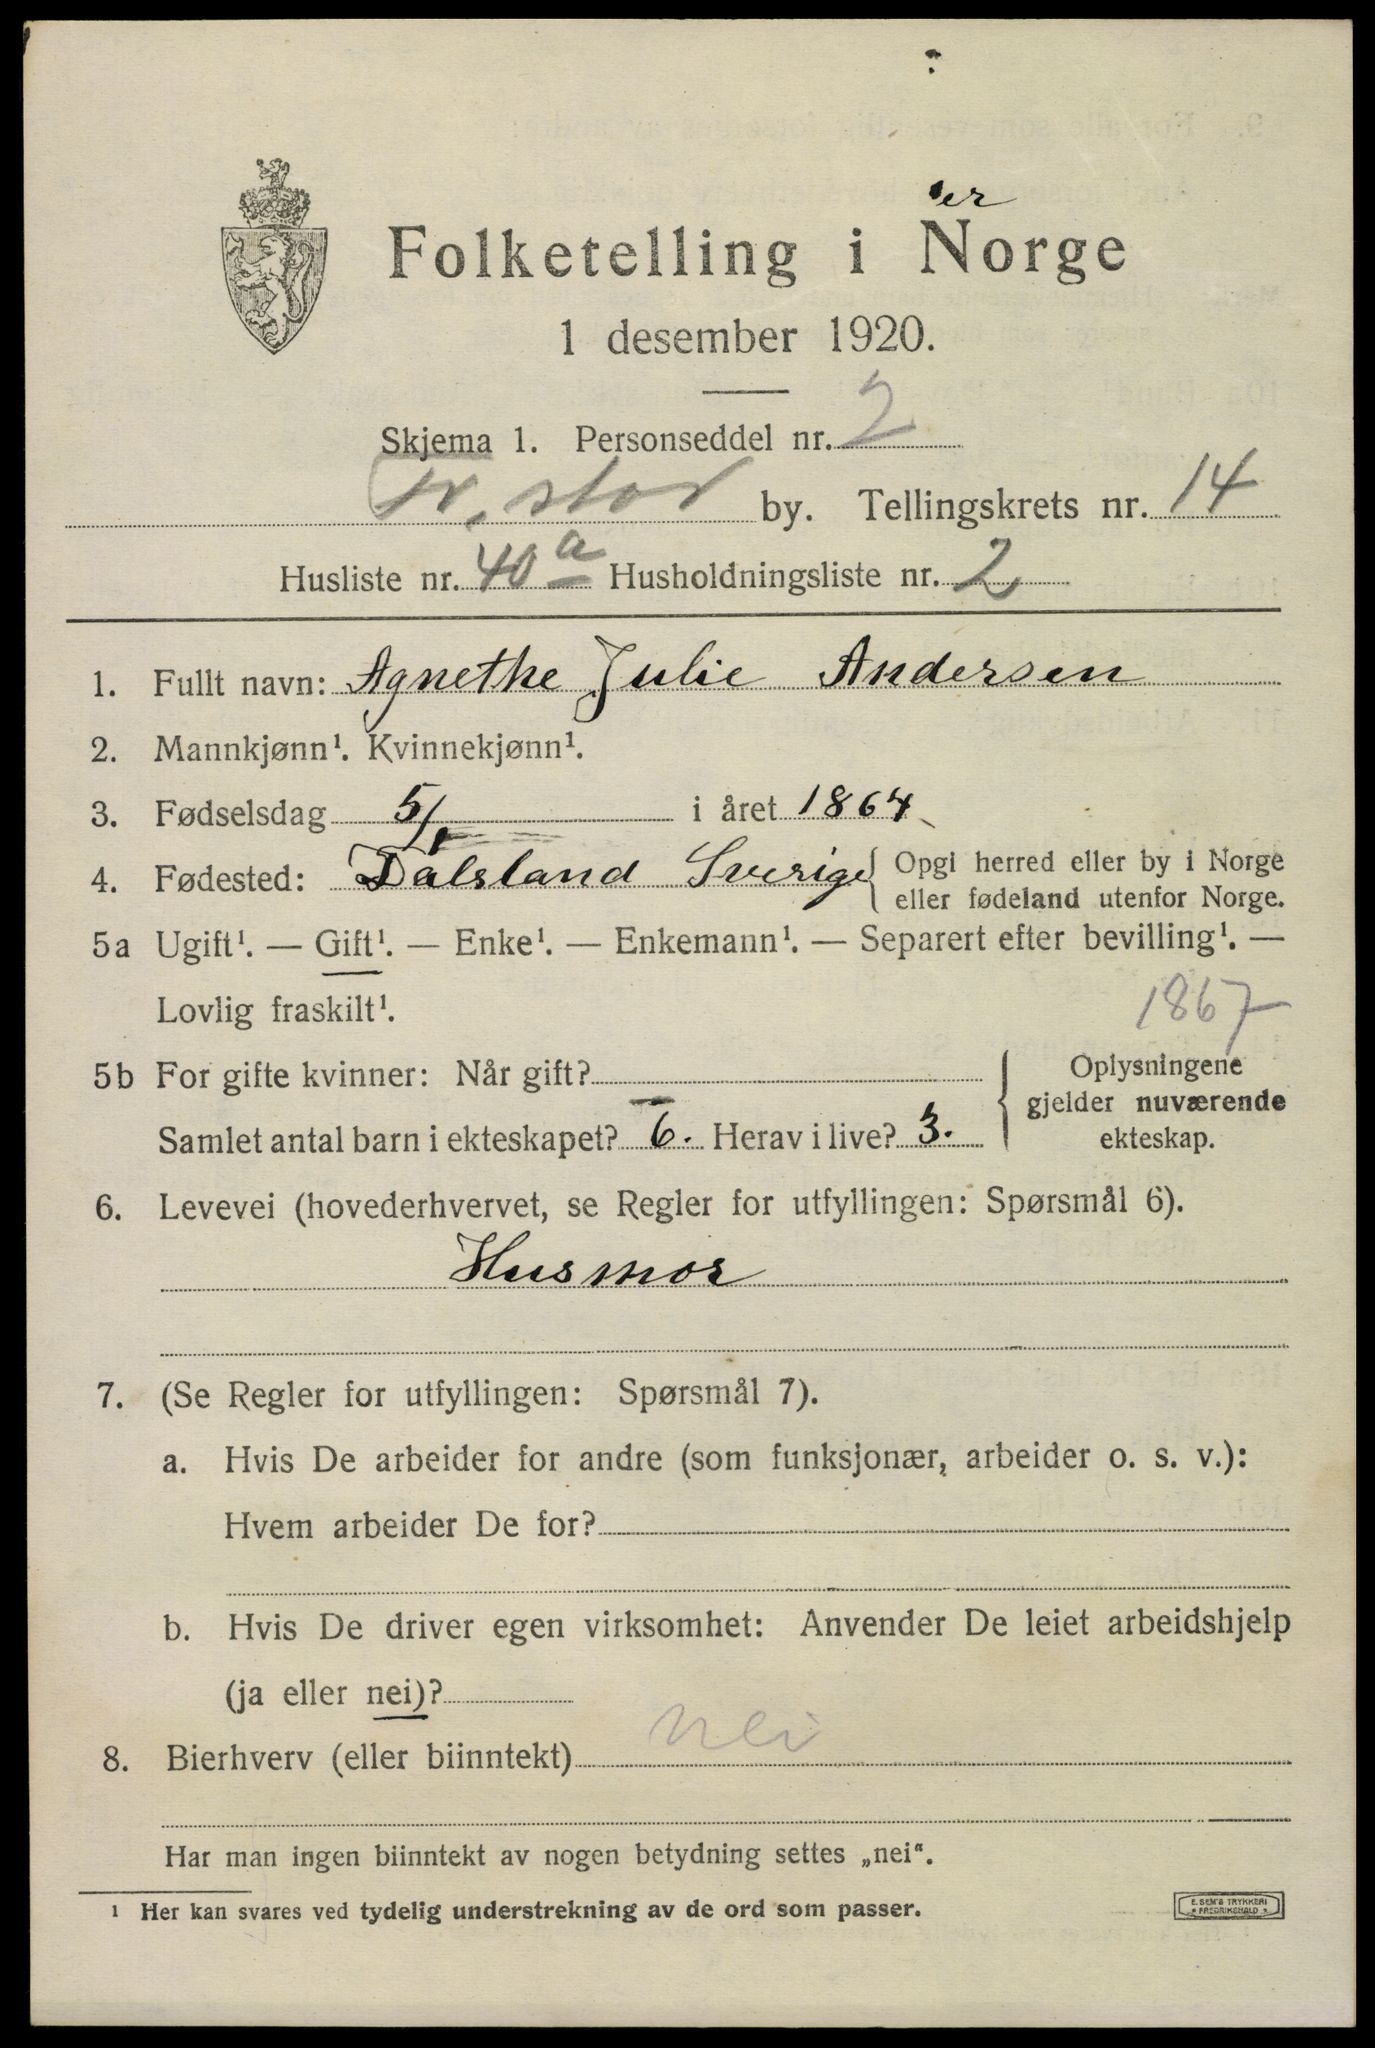 er
Folketelling i Norge
1 desember 1920.
Skjema 1. Personseddel nr. 2
Fr.stad by. Tellingskrets nr. 14
Husliste nr. 40 a Husholdningsliste nr. 2
1. Fullt navn: Agnethe Julie Andersen
2. Mannkjønn¹. Kvinnekjønn¹.
3. Fødselsdag 5/ i året 1864
4. Fødested: Dalsland Sverige { Opgi herred eller by i Norge
eller fødeland utenfor Norge.
5a Ugift¹. — Gift¹. — Enke¹. — Enkemann¹. — Separert efter bevilling¹. —
Lovlig fraskilt¹.
1867
5b For gifte kvinner: Når gift? { Oplysningene
gjelder nuværende
Samlet antal barn i ekteskapet? 6. Herav i live? 3. ekteskap.
6. Levevei (hovederhvervet, se Regler for utfyllingen: Spørsmål 6).
Husmor
7. (Se Regler for utfyllingen: Spørsmål 7).
a. Hvis De arbeider for andre (som funksjonær, arbeider o. s. v.):
Hvem arbeider De for?
b. Hvis De driver egen virksomhet: Anvender De leiet arbeidshjelp
(ja eller nei)?
8. Bierhverv (eller biinntekt) nei
Har man ingen biinntekt av nogen betydning settes „nei“.
¹ Her kan svares ved tydelig understrekning av de ord som passer.
E. SEM'S TRYKKERI
* FREDRIKSHALD *